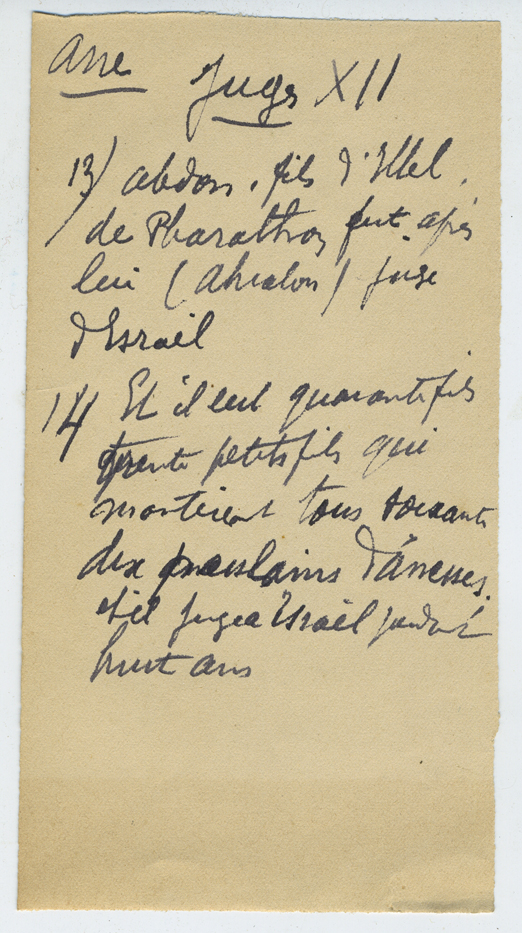 Ane
Juges XII
13) abdon, fils d'Illel,
de Pharathon fut après
lui (Ahialon) juge
d'Israël
14 Et il eut quarante fils
trente petits fils qui
montèrent tous soixante
dix poulains d'ânesses.
et il jugea Israël pendant
huit ans